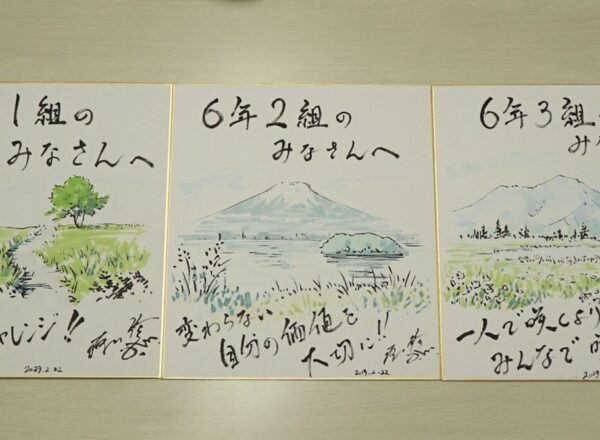 1組の
みなさんへ
レンジ!!
6年2組の
みなさんへ
変わらない
自分の価値を
大切に!!
2019.2.22
6年3組
み
一人で咲くより
みんなで